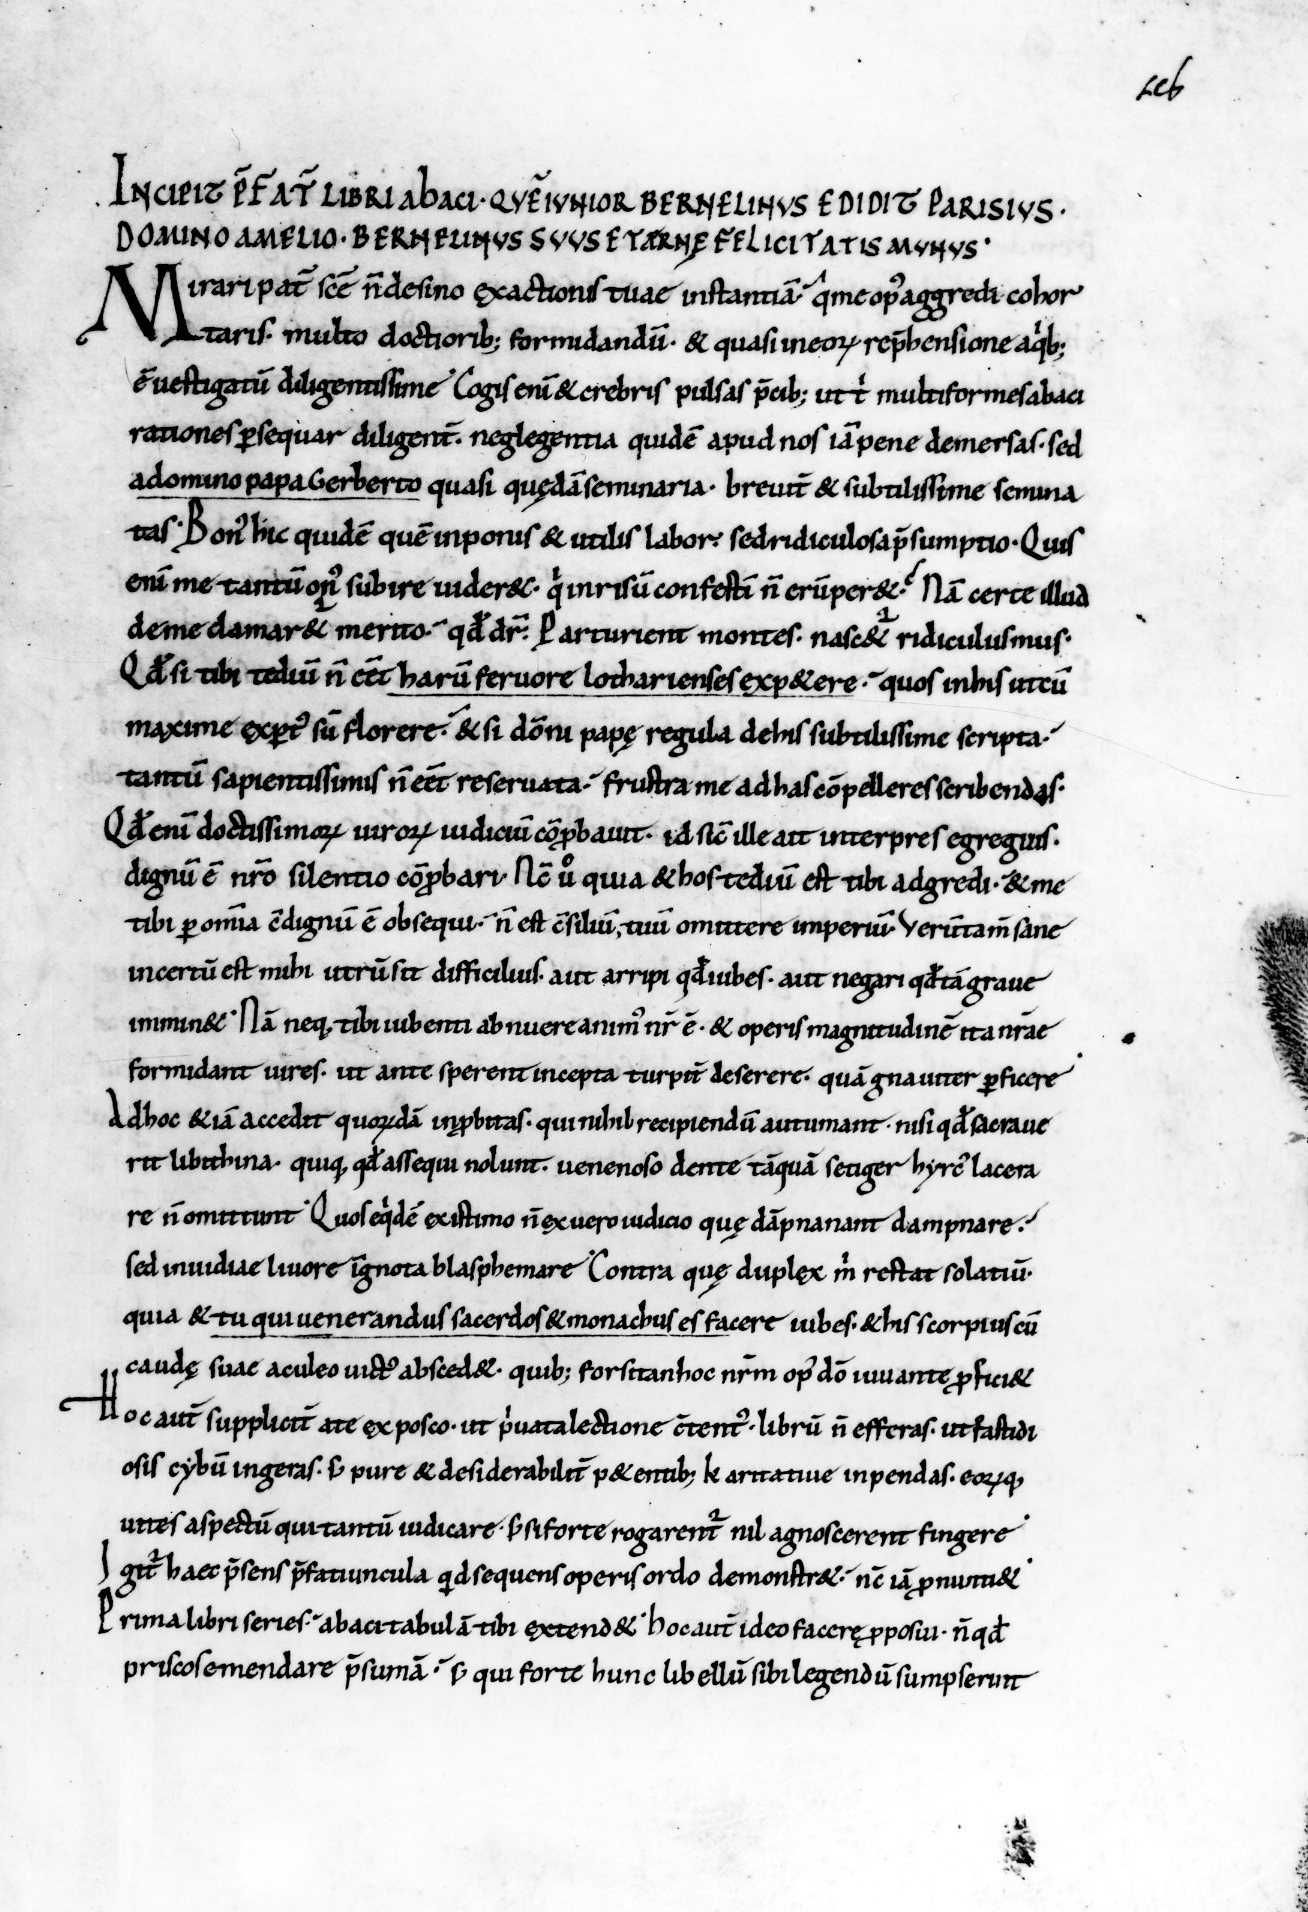 Lcb
INCIPIT P̄FAT̄ LIBRI Abaci· QVĒ IVNIOR BERNELINVS EDIDIT PARISIVS·
DOMINO AMELIO· BERNELINVS SVVS ETARNĘ FELICITATIS MVNVS·
Mirari pat̄ sc̄e n̄ desino exactionis tuae instantiā· q̍ me opꝰ aggredi cohor
taris· multo doctiorib; formidandū· & quasi in eoꝝ rep̄hensione a q̍b;
ē uestigatū diligentissime· Cogis enī & crebris pulsas p̄cib; ut t̍ multiformes abaci
rationes ꝑsequar diligent̄· neglegentia quidē apud nos iā pene demersas· sed
a domino papa Gerberto quasi quędā seminaria· breuit̄ & subtilissime semina
tas· Bonꝰ hic quidē quē inponis & utilis labor· sed ridiculosa p̄sumptio· Quis
enī me tantū onꝰ subire uider&· q̍ in risū confestī n̄ erūper&· Nā certe illud
de me clamar& merito· qđ dr̄· Parturient montes· nasc&᷑ ridiculus mus·
Qđ si tibi tediū n̄ eēt harū feruore lotharienses exp&ere· quos in his ut cū
maxime exꝑtꝰ sū florere· & si dōni papę regula de his subtilissime scripta·
tantū sapientissimis n̄ eēt reseruata· frustra me ad has cōpelleres scribendas·
Qđ enī doctissimoꝝ uiroꝝ iudiciū cōꝓbauit· id sic̄ ille ait interpres egregius·
dignū ē nr̄o silentio cōꝓbari· Nc̄ uͦ quia & hos tediū est tibi adgredi· & me
tibi ꝑ omīa ēdignū ē obsequi· n̄ est c̄siliū, tuū omittere imperiū· Verūtam̄ sane
incertū est mihi utrū sit difficilius· aut arripi qđ iubes· aut negari qđ tā graue
immin&· Nā neq, tibi iubenti abnuere animꝰ nr̄ ē· & operis magnitudinē ita nr̄ae
formidant uires· ut ante sperent incepta turpit̄ deserere· quā gnauiter ꝑficere
Ad hoc & iā accedit quoꝝdā inꝓbitas· qui nihil recipiendū autumant· nisi qđ sacraue
rit libithina· quiq, qđ assequi nolunt· uenenoso dente tāquā setiger hyrcꝰ lacera
re n̄ omittunt· Quos eq̍dē existimo n̄ ex uero iudicio quę dāpnanant dampnare·
sed inuidiae liuore īgnota blasphemare· Contra quę duplex m̍ restat solatiū·
quia & tu qui uenerandus sacerdos & monachus es facere iubes· & his scorpius cū
caudę suae aculeo uictꝰ absced&· quib; forsitan hoc nr̄m opꝰ dō iuuante ꝓfici&
Hoc aut̄ supplicit̄ a te exposco· ut p̍uata lectione c̄tentꝰ· librū n̄ efferas· ut fastidi
osis cybū ingeras· s̵ pure & desiderabilit̄ p&entib; karitatiue inpendas· eoꝝq,
uites aspectū qui tantū iudicare· s̵ si forte rogarent᷑ nil agnoscerent fingere·
Igit᷑ haec p̄sens p̄fatiuncula quid sequens operis ordo demonstr&· nc̄ iā ꝓnunti&·
Prima libri series· abaci tabulā tibi extend&· hoc aut̄ ideo facerę ꝓposui· n̄ qđ
priscos emendare p̄sumā· s̵ qui forte hunc libellū sibi legendū sumpserint